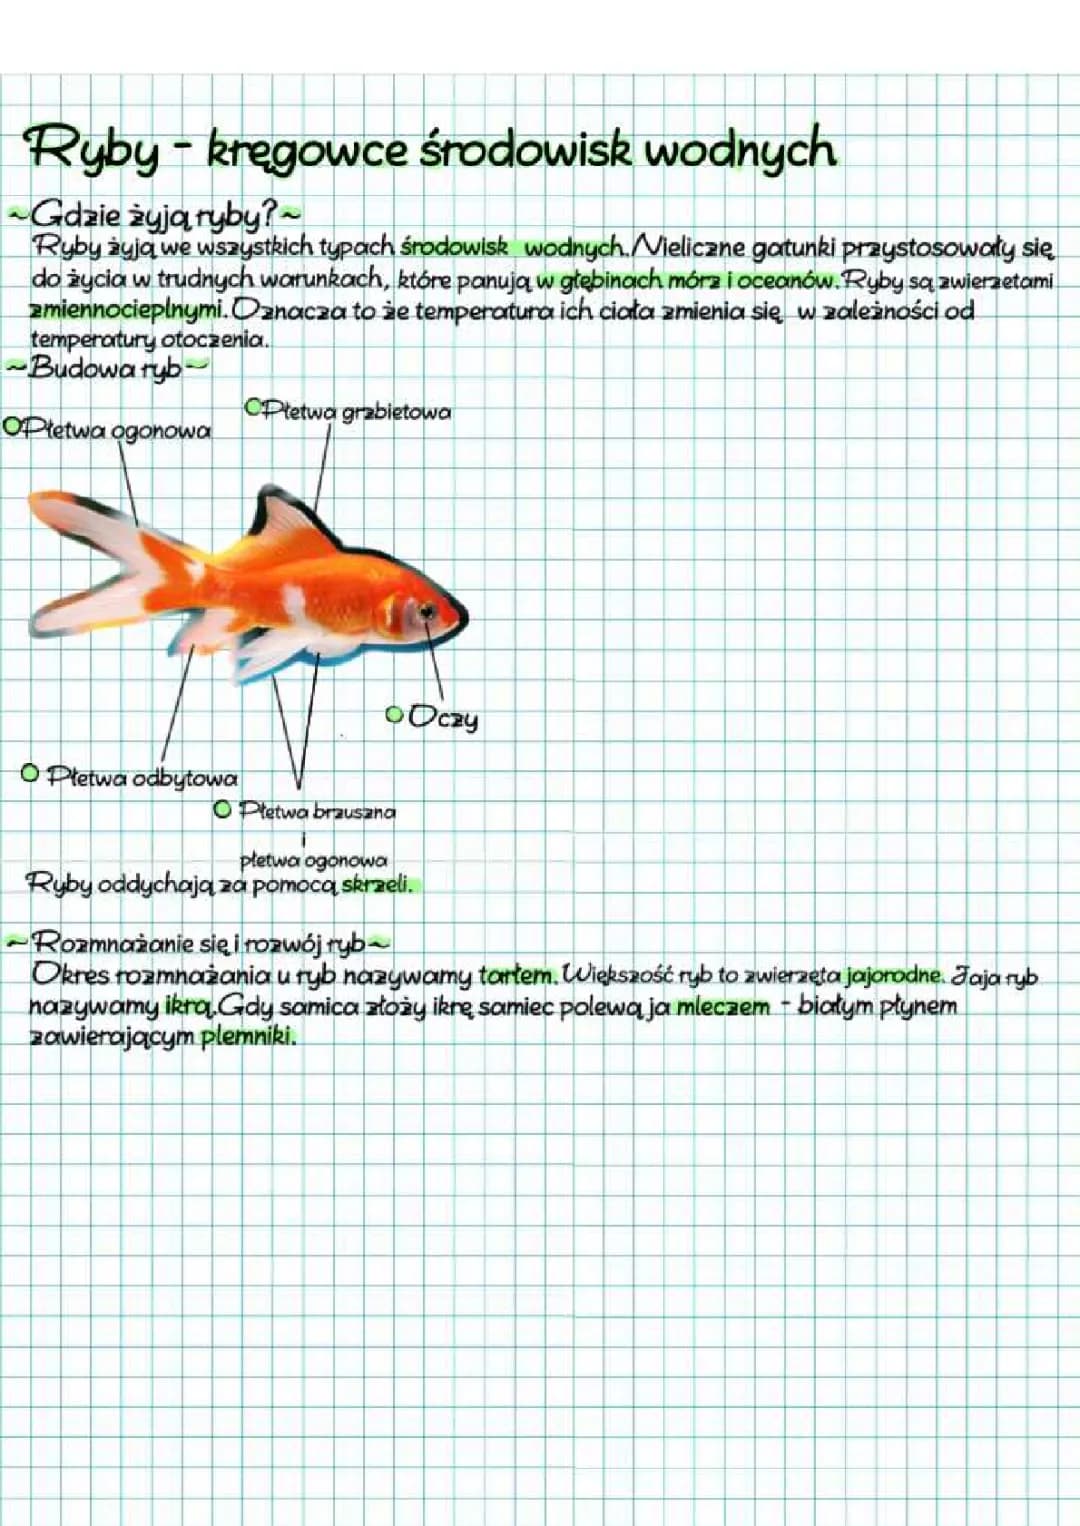 Ryby - kręgowce środowisk wodnych
~Gdzie żyją ryby?~
Ryby żyją we wszystkich typach środowisk wodnych. Nieliczne gatunki przystosowały się
do życia w trudnych warunkach, które panują w głębinach mórz i oceanów. Ryby są zwierzetami
zmiennocieplnymi. Oznacza to że temperatura ich ciała zmienia się w zależności od
temperatury otoczenia.
~Budowa ryb~
Płetwa grzbietowa
Płetwa ogonowa
Oczy
Płetwa odbytowa
Płetwa brzuszna
i
płetwa ogonowa
Ryby oddychają za pomocą skrzeli.
~Rozmnażanie się i rozwój ryb~
Okres rozmnażania u ryb nazywamy tarłem. Większość ryb to zwierzęta jajorodne. Jaja ryb
nazywamy ikrą. Gdy samica złoży ikrę samiec polewą ja mleczem - białym płynem
zawierającym plemniki.